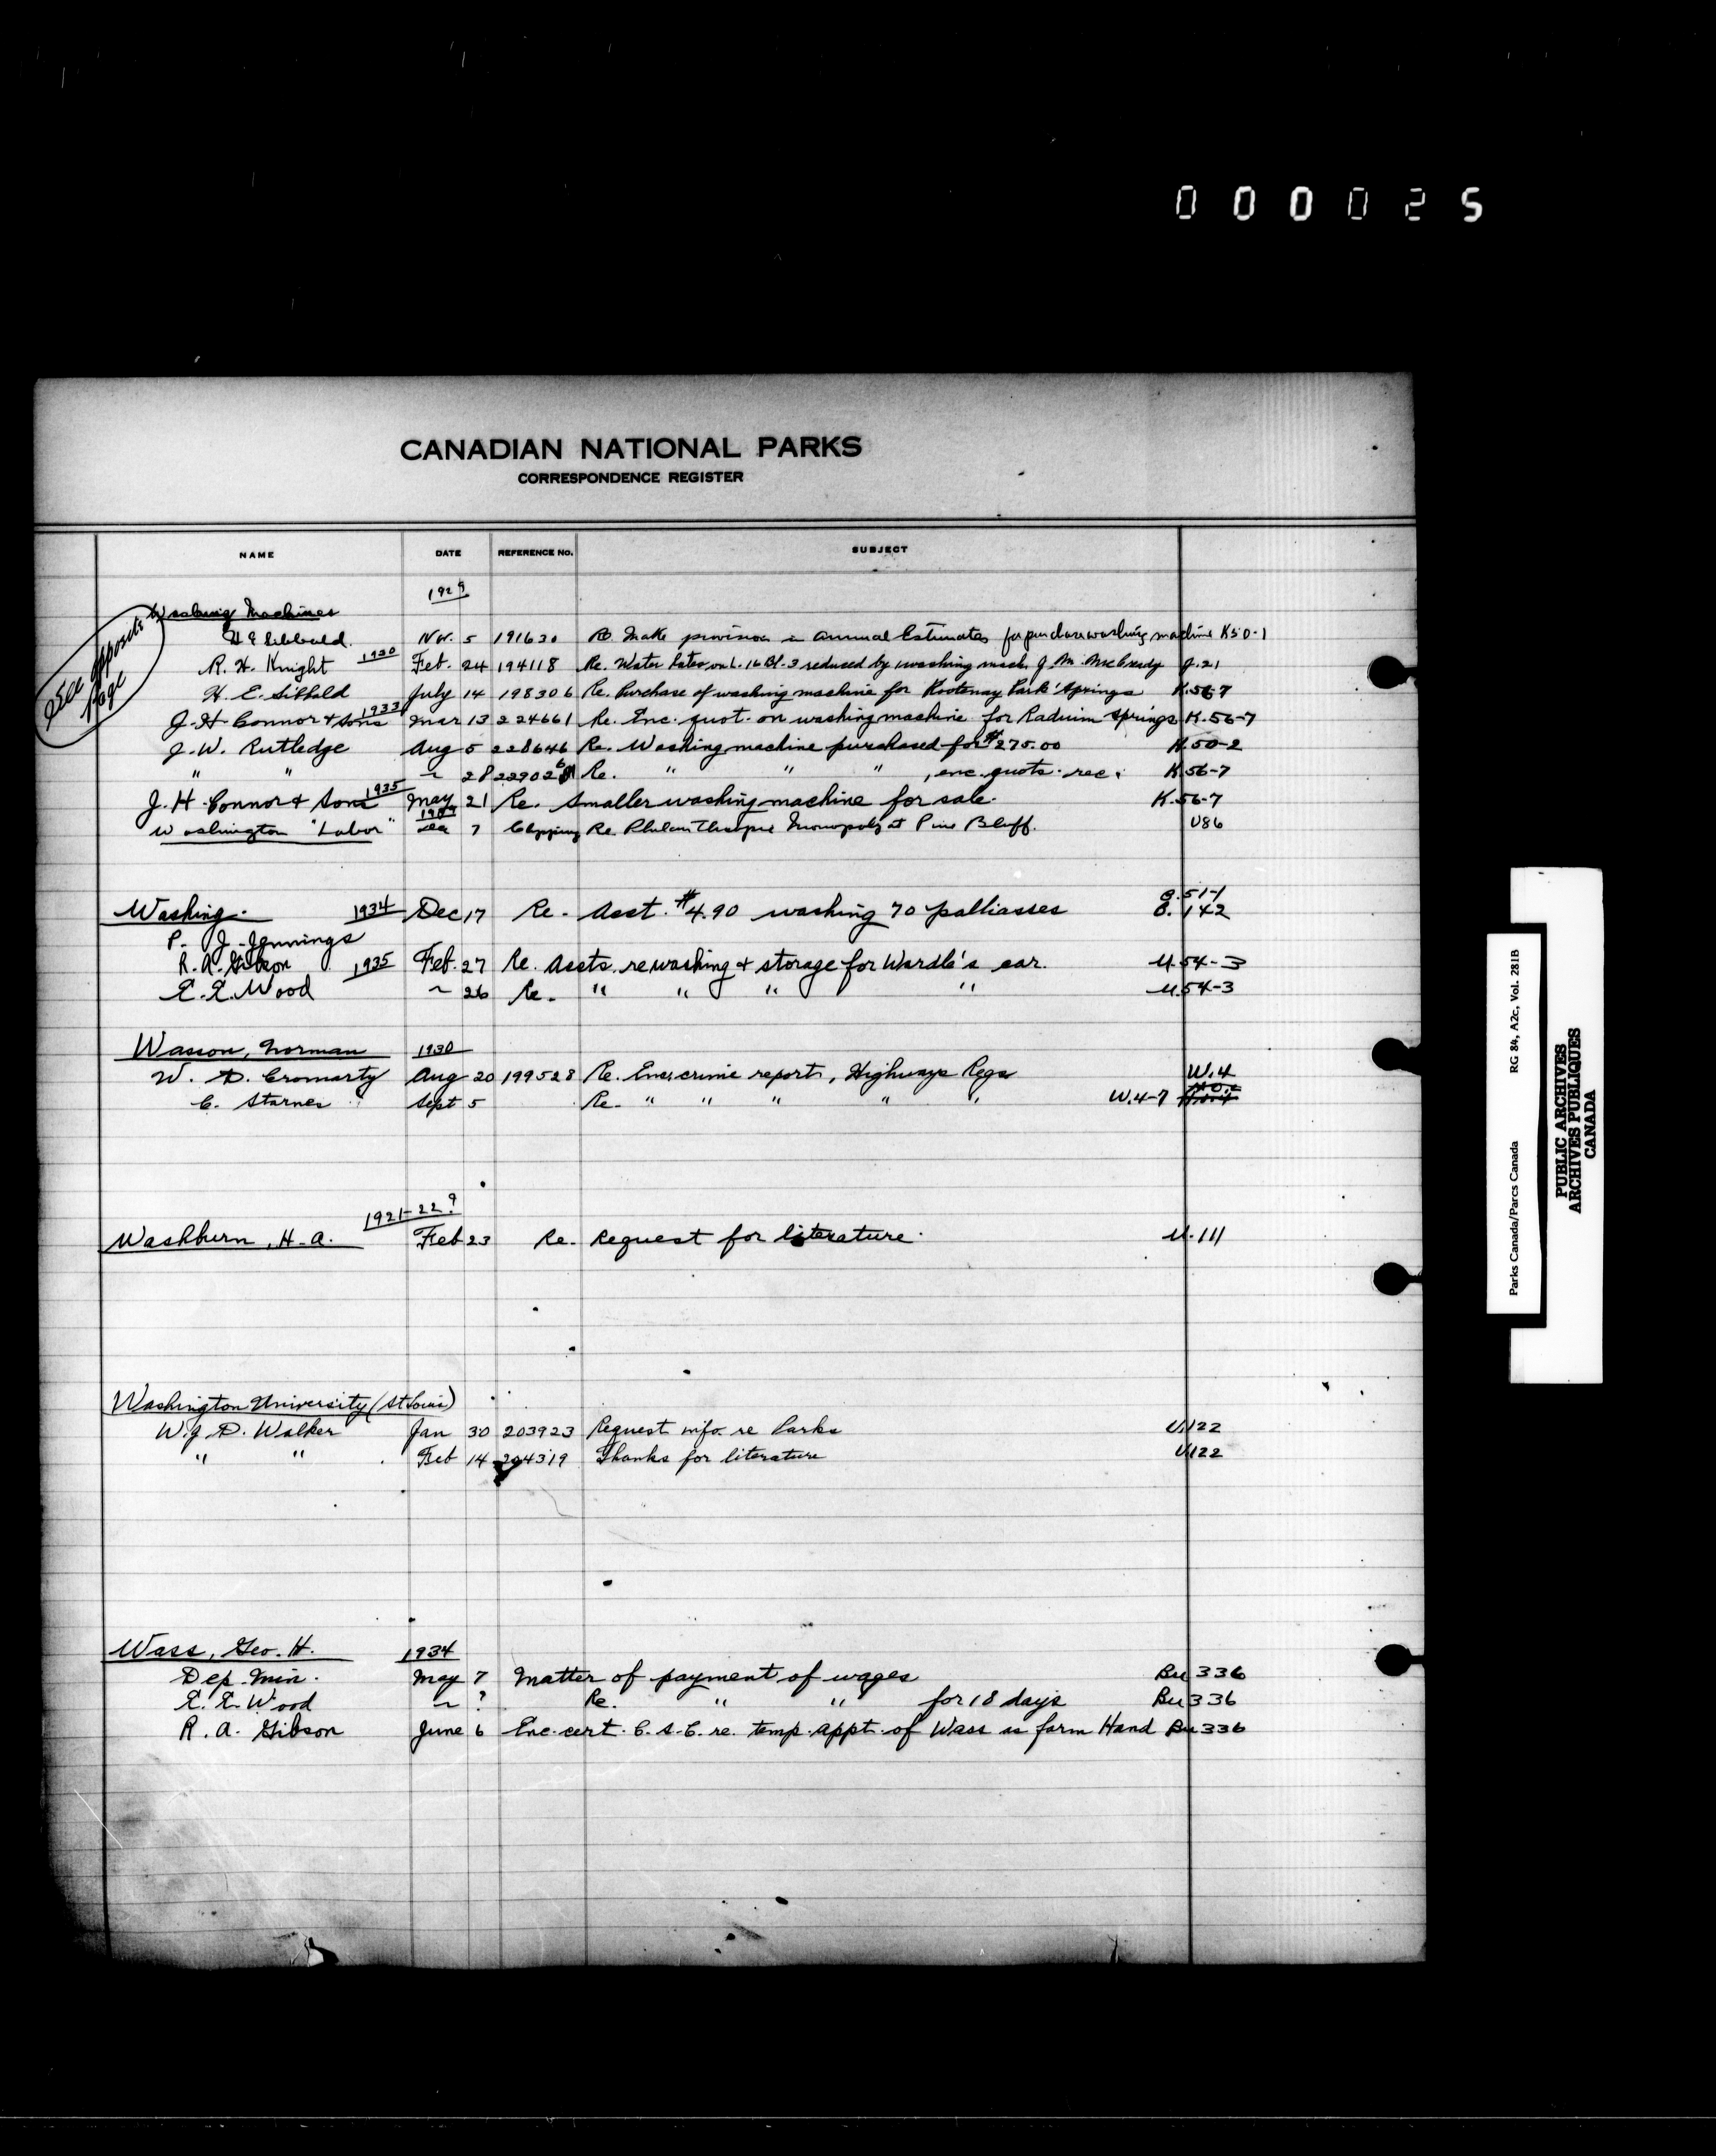 000025
CANADIAN NATIONAL PARKS
CORRESPONDENCE REGISTER
NAME DATE REFERENCE No. SUBJECT
1929
Washing Machines
See opposite page
H E Sibbald Nov. 5 191630 Re. Make provision in Annual Estimates for purchase washing machine K50-1
R. H. Knight 1930 Feb. 24 194118 Re. Water Rates, on L. 16 Bl. 3 reduced by washing mach. J. M. McCready J.21
H. E. Sibbald July 14 198306 Re. Purchase of washing machine for Kootenay Park Springs K.56-7
J. H. Connor & Sons 1933 Mar 13 224661 Re. Enc. quot. on washing machine for Raduim Springs K.56-7
J. W. Rutledge Aug 5 228646 Re. Washing machine purchased for $275.00 K.50-2
" " ~ 28 Re. " " " , enc. quots. rec. K.56-7
J. H. Connor & Sons 1935 May 21 Re. Smaller washing machine for sale. K.56-7
Washington "Labor" 7 Clipping Re. Monopoly at Pine Bluff. U86
Washing. 1934 Dec 17 Re. Acct. $4.90 washing 70 palliasses
C.51-1
C.142
P. J. Jennings
R. A. Gibson 1935 Feb. 27 Re. Accts. re washing & storage for Wardle's car. U.54-3
E. E. Wood ~ 26 Re. " " " " U.54-3
Wasson, Norman 1930
W. D. Cromarty Aug 20 199528 Re. Enc. crime report, Highways Regs W.4
C. Starnes Sept 5 Re. " " " " " W.4-7
1921-22?
Washburn, H. A. Feb 23 Re. Request for literature. U.111
Washington University (St Louis)
W. J. D. Walker Jan 30 203923 Request info. re Parks U122
" " Feb 14 204319 Thanks for literature U122
Wass, Geo. H. 1934
Dep. Min. May 7 Matter of payment of wages Bu 336
E. E. Wood ~ ? Re. " " for 18 days Bu 336
R. A. Gibson June 6 Enc. cert. C. S. C. re. temp. appt. of Wass as farm Hand Bu 336
Parks Canada/Parcs Canada RG 84, A2c, Vol. 281B
PUBLIC ARCHIVES
ARCHIVES PUBLIQUES
CANADA